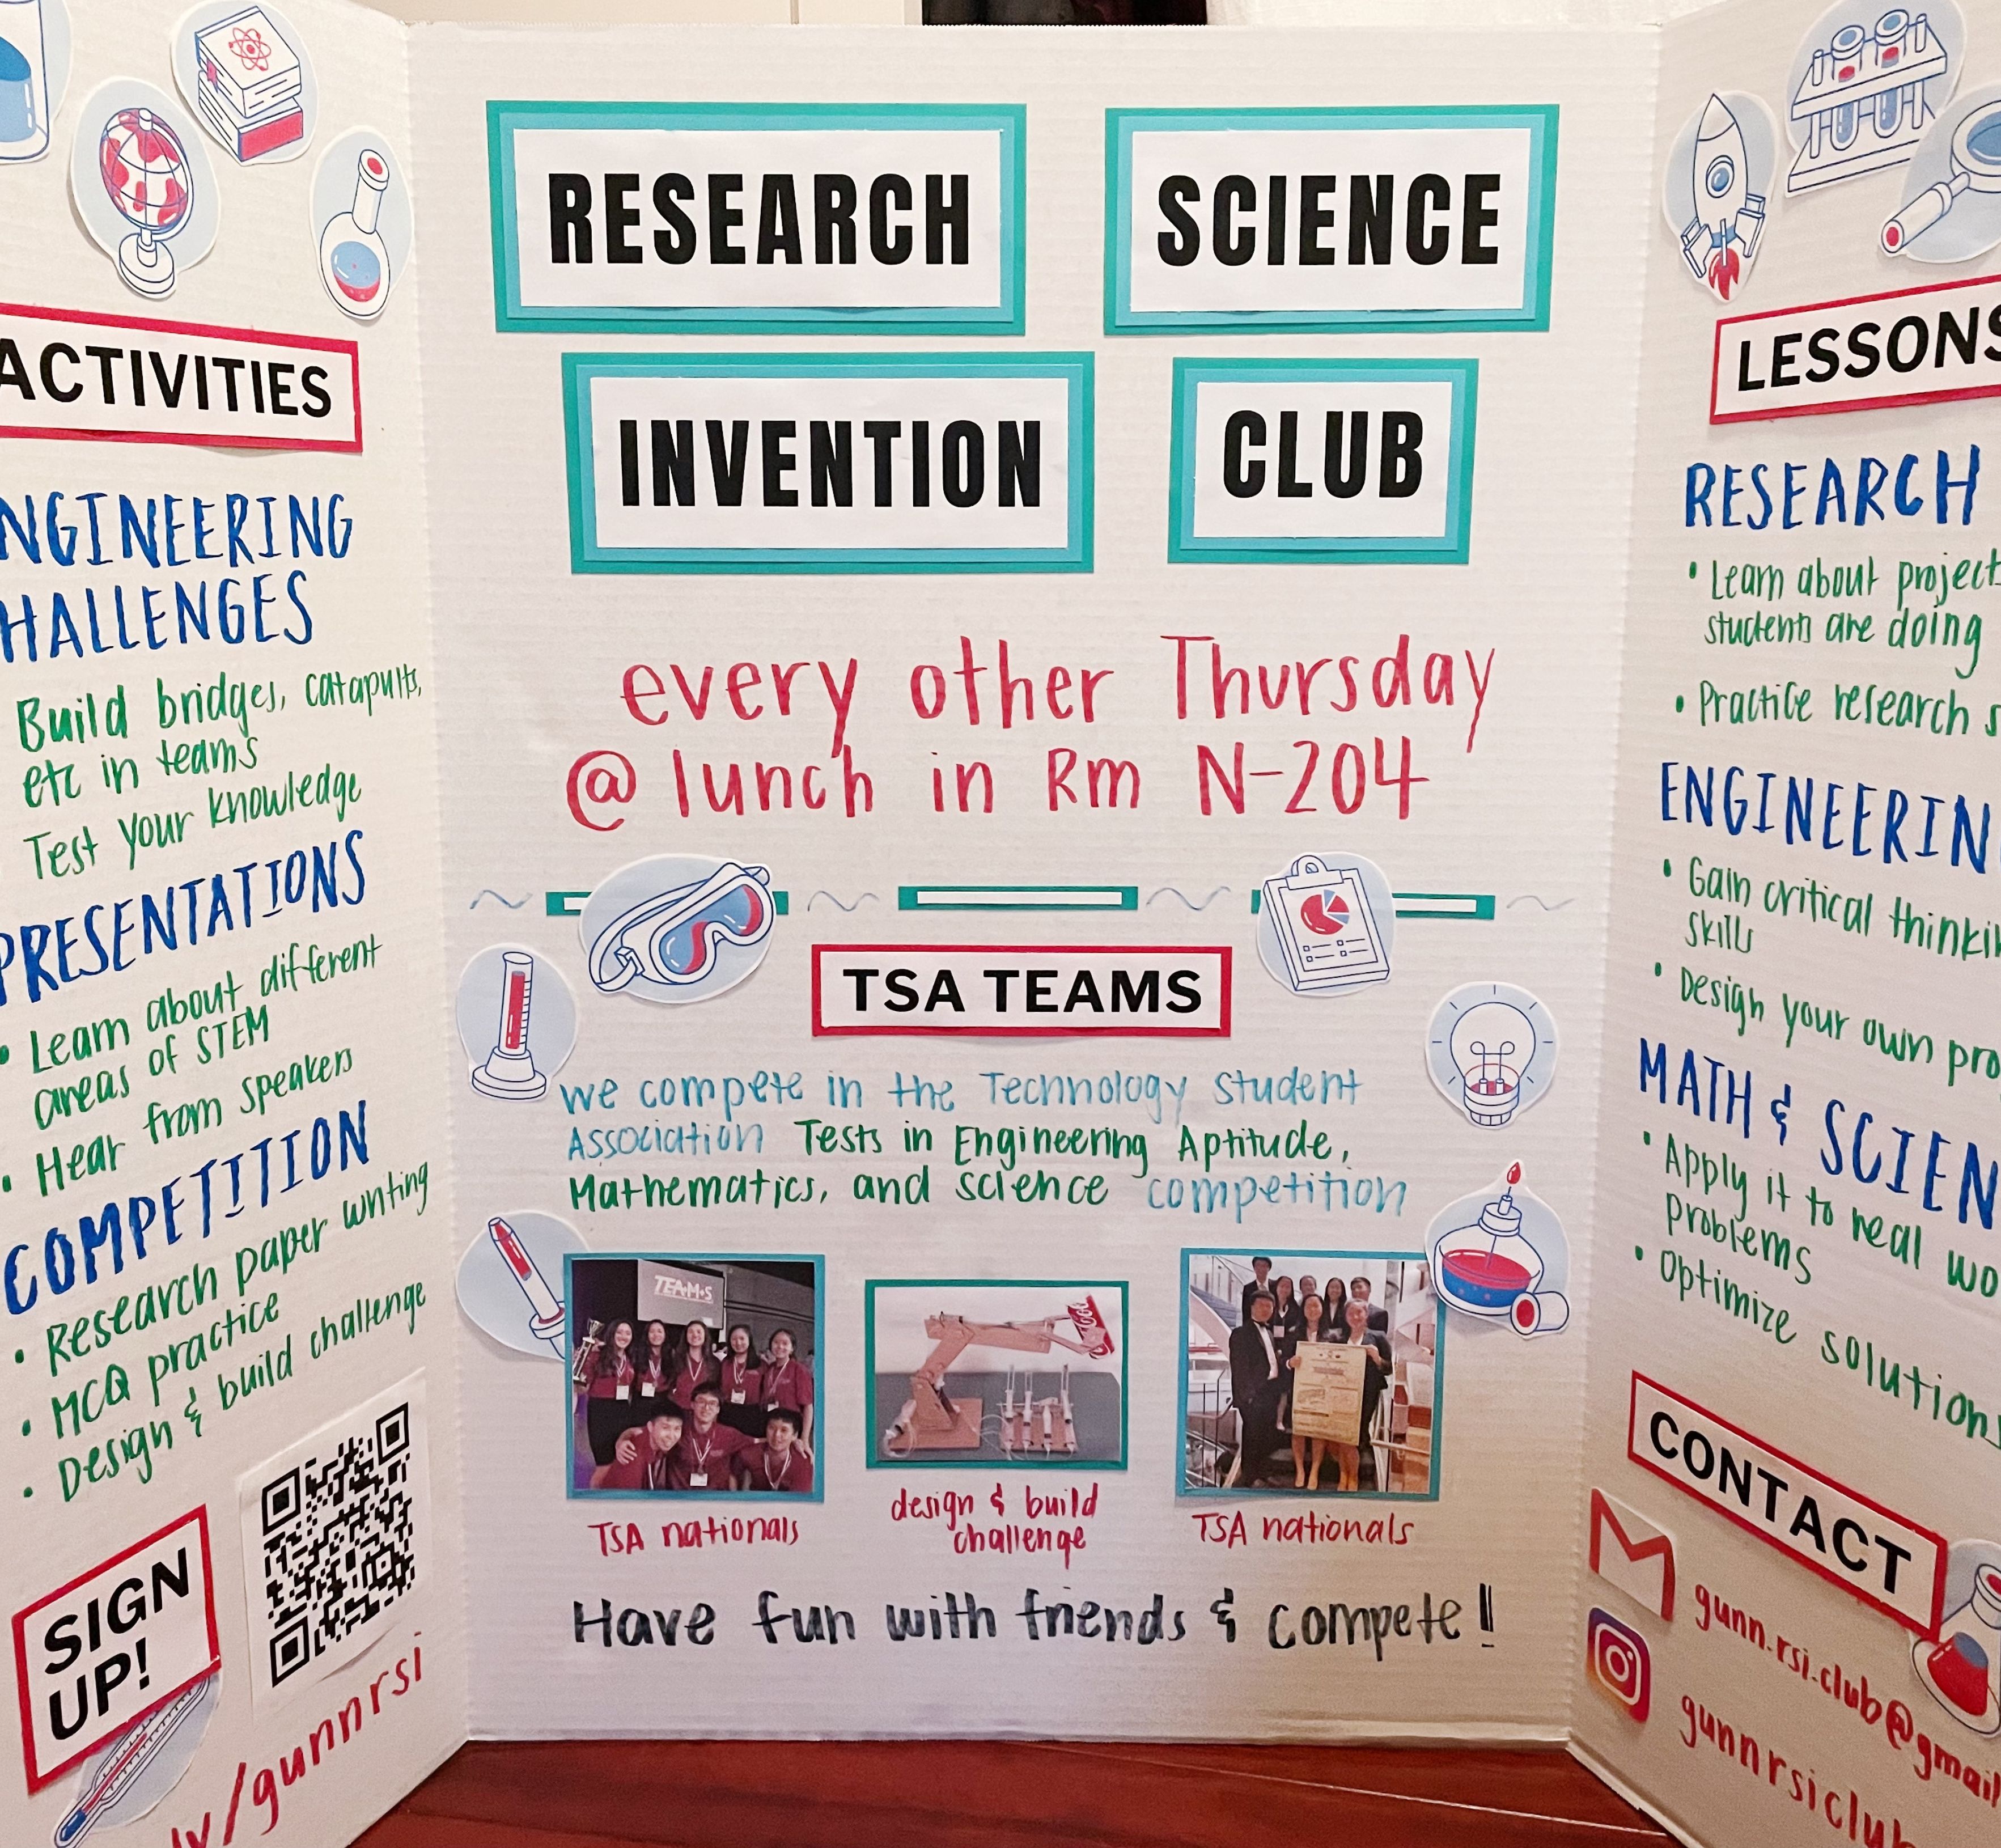 ACTIVITIES
NGINEERING
HALLENGES
Build bridges, catapults,
etc in teams
Test your knowledge
PRESENTATIONS
• Learn about different
areas of STEM
• Hear from speakers
COMPETITION
• Research paper writing
• MCQ practice
• Design & build challenge
SIGN
UP!
ly/gunnrsi
RESEARCH SCIENCE
INVENTION CLUB
every other Thursday
@ lunch in Rm N-204
TSA TEAMS
we compete in the Technology Student
Association Tests in Engineering Aptitude,
Mathematics, and science competition
TEAMS
TSA nationals
design & build
challenge
TSA nationals
Have fun with friends & compete!!
LESSONS
RESEARCH
• Learn about project
students are doing
• Practice research s
ENGINEERIN
• Gain critical thinkin
skills
• Design your own pro
MATH & SCIEN
• Apply it to real wo
problems
• Optimize solutions
CONTACT
gunn.rsi.club@gmail
gunnrsiclub